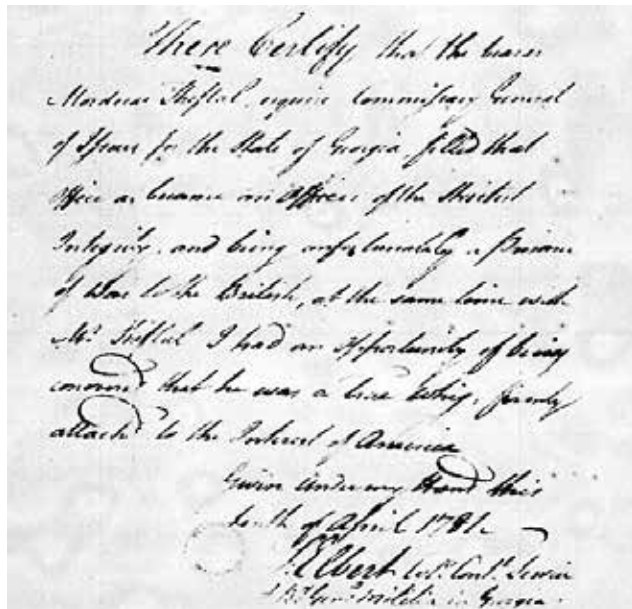 I here Certify that the bearer
Mordecai Sheftal, esquire Commissary General
of Issues for the State of Georgia filled that
office as became an Officer of the Strictest
Integrity, and being unfortunately a Prisoner
of War to the British, at the same time with
Mr. Sheftal I had an opportunity of being
convinced that he was a true Whig, firmly
attachd to the Interest of America
Given under my Hand this
tenth of April 178
S Elbert Col. Contl.
& Br. Genl. Militia in Georgia